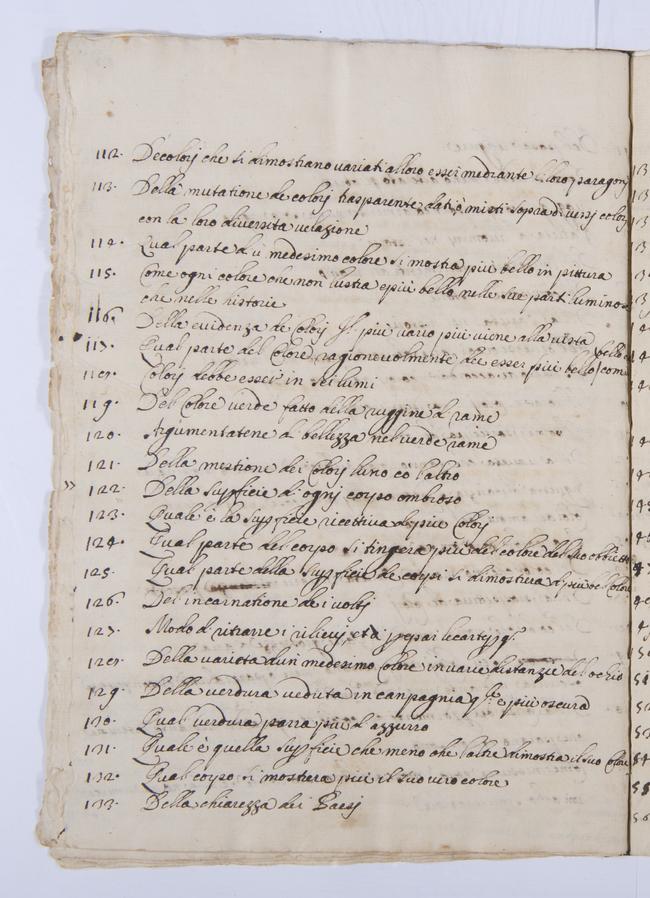 112. De colorj che si dimostrano variati al loro esser mediante i loro paragonj
113. Della mutatione de colorj trasparente dati ò misti sopra diversj colorj
con la loro diversita velazione
114. Qual parte d'ũ medesimo colore si mostra più bello in pittura
115. Come ogni colore che non lustra è piu bello nelle sue parti luminose
che nelle
116. Della evidenza de Colorj
117. Qual parte del Colore ragionevolmente dee esser più bello
118. Colorj debbe esser in sei lumi
119. Del Colore verde fatto della ruggine d rame
120. Argumentatene d bellezza nel verde rame
121. Della mestione dei Colorj luno cõ laltro
122. Della supficie d' ognj corpo ombroso
123. Quale è la supficie ricettiva d piu Colorj
124. Qual parte del corpo si tingera piu del colore del suo obbietto
125. Qual parte della supficie de corpi si dimostra d più bel Colore
126. Del incarnatione de i voltj
127. Modo d ritrarre i rilievj, et d
128. Della varieta dun medesimo Colore in varie distanzie del ochio
129. Della verdura veduta in canpagnia è più oscura
130. Qual verdura parra più d azzurro
131. Quale è quella supficie che meno che laltre dimostra il suo Colore
132. Qual corpo si mostrera più il suo vero colore
133. Della chiarezza dei Paesj